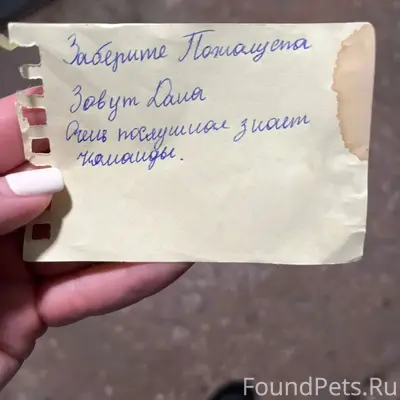 Заберите Пожалуста
Зовут Дана
Очень послушная знает
команды.
FoundPets.Ru